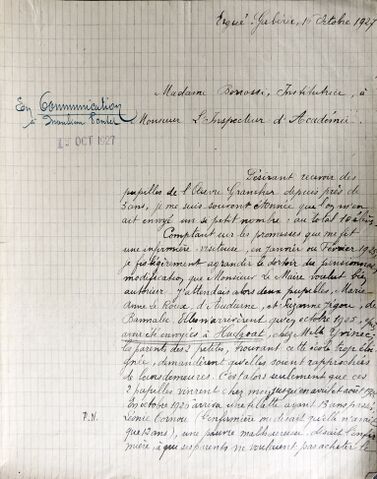 Ergué-Gabéric, 15 Octobre 1927
Madame Institutrice, à
Monsieur L'Inspecteur d'Académie
En Communication
à Monsieur
OCT 1927
Désirant recevoir des
pupilles de l'Oeuvre Grancher depuis près de
5 ans, je me suis souvent étonnée que l'on m'en
ait envoyé un si petit nombre: au total
Comptant sur les promesses que me fit
une infirmière visiteuse, en Janvier ou Février 1925,
je fis légèrement agrandir le dortoir du pensionnat,
modification que Monsieur Le Maire voulut bien
autoriser. J'attendais alors deux pupilles, Marie-
Anne Le Roux, d'Audierne, et Suzanne de
Bannalec. Elles n'arrivèrent qu'en octobre 1925,
envoyées à Huelgoat, chez Melle
les parents des 2 petites, trouvant cette école trop éloi-
gnée, demandèrent qu'elles soient rapprochées
de leurs demeures. C'est alors seulement que ces
2 pupilles vinrent chez moi, jusqu'en avril et août
En octobre 1925 arriva une fillette ayant 13 ans passés,
Léonie Cornou (l'infirmière me disait qu'elle n'avait
que 12 ans), une pauvre malheureuse, disait l'infir-
mière, à qui ses parents ne voulaient pas acheter le
P.N.